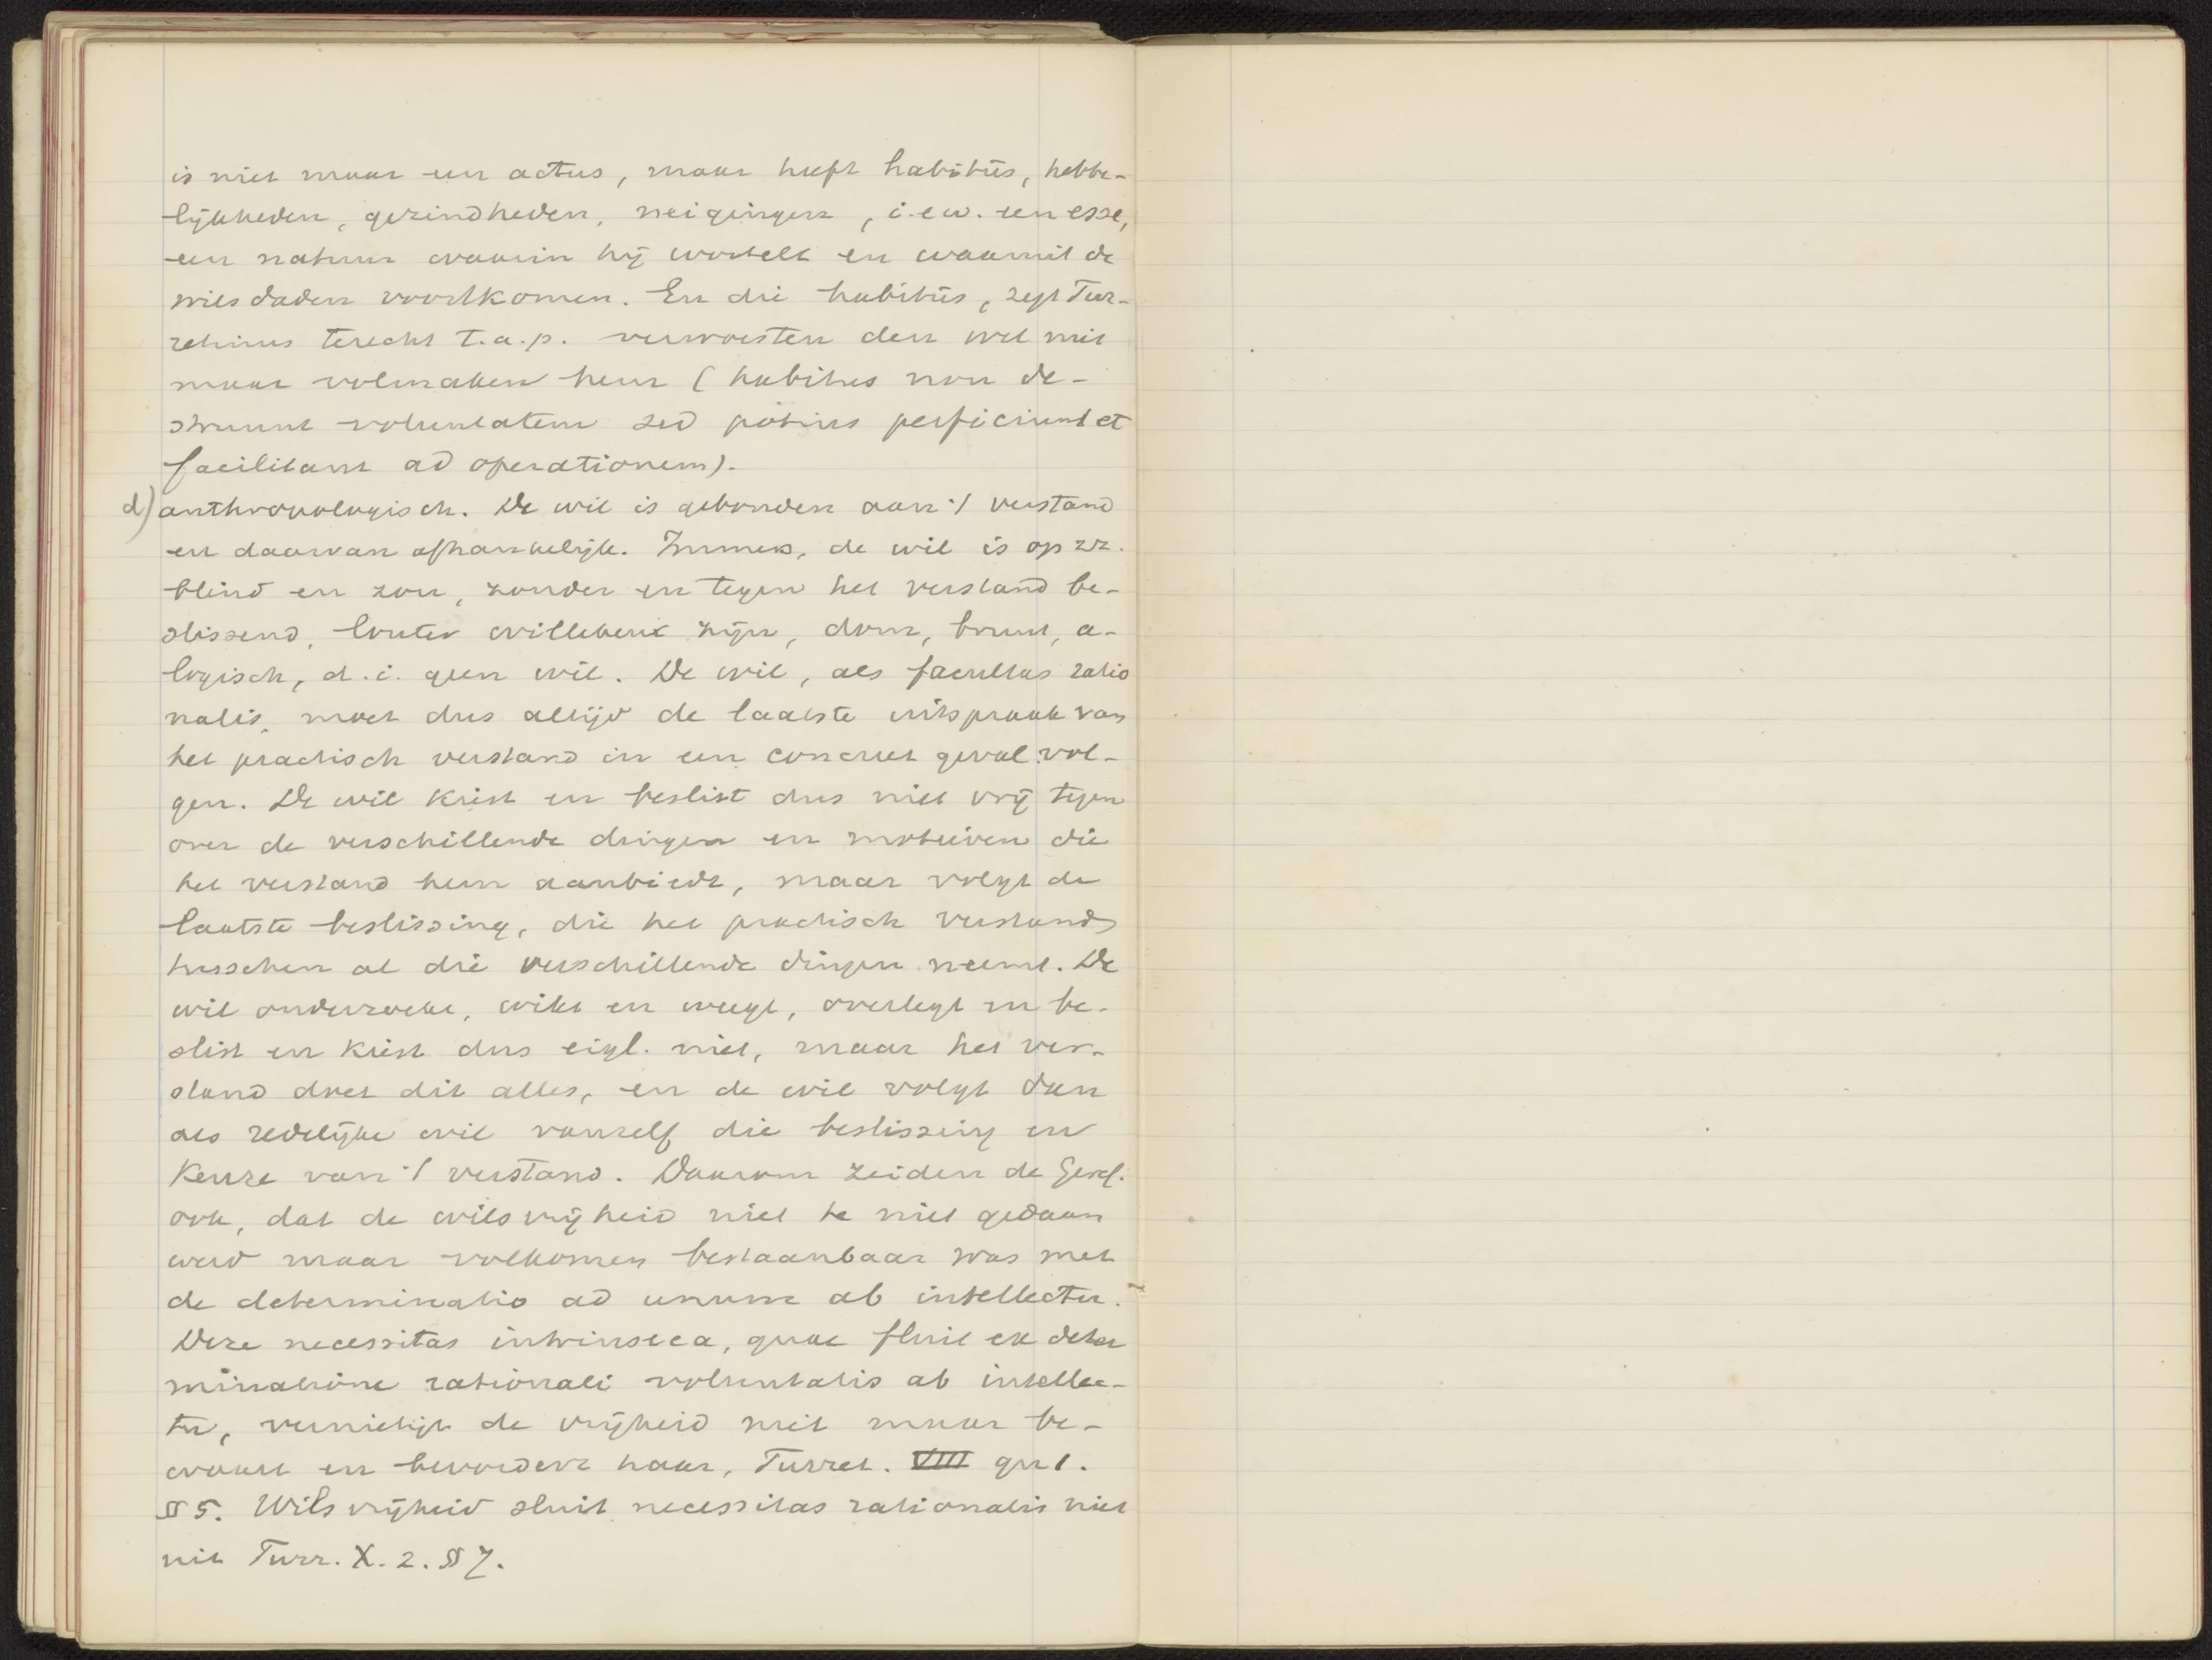 is niet maar een actus, maar heeft habitûs, hebbe-
lijkheden, gezindheden, neigingen, i.e.w. een esse,
een natuur waarin hij wortelt en waaruit de
wilsdaden voortkomen. En die habitûs, zegt Tur-
retinus terecht t.a.p. verwoesten den wil niet
maar volmaken hem (habitus non de-
struunt voluntatem sed potius perficiunt et
facilitant ad operationem).
d) anthropologisch. De wil is gebonden aan 't verstand
en daarvan afhankelijk. Immers, de wil is op zz.
blind en zou, zonder en tegen het verstand be-
slissend, louter willekeur zijn, dom, bruut, a-
logisch, d.i. geen wil. De wil, als facultas ratio
nalis, moet dus altijd de laatste uitspraak van
het practisch verstand in een concreet geval vol-
gen. De wil kiest en beslist dus niet vrij tegen
over de verschillende dingen en motieven die
het verstand hem aanbiedt, maar volgt de
laatste beslissing, die het practisch verstand
tusschen al die verschillende dingen neemt. De
wil onderzoekt, wikt en weegt, overlegt en be-
slist en kiest dus eigl. niet, maar het ver-
stand doet dit alles, en de wil volgt dan
als redelijke wil vanzelf die beslissing en
keuze van 't verstand. Daarom zeiden de Geref.
ook, dat de wilsvrijheid niet te niet gedaan
werd maar volkomen bestaanbaar was met
de determinatio ad unum ab intellectu.
Deze necessitas intrinseca, quae fluit ex deter
minatione rationali voluntatis ab intellec-
tu, vernietigt de vrijheid niet maar be-
waart en bevordert haar, Turret. VIII qu 1.
§ 5. Wilsvrijheid sluit necessitas rationalis niet
uit Turr. X. 2. § 7.